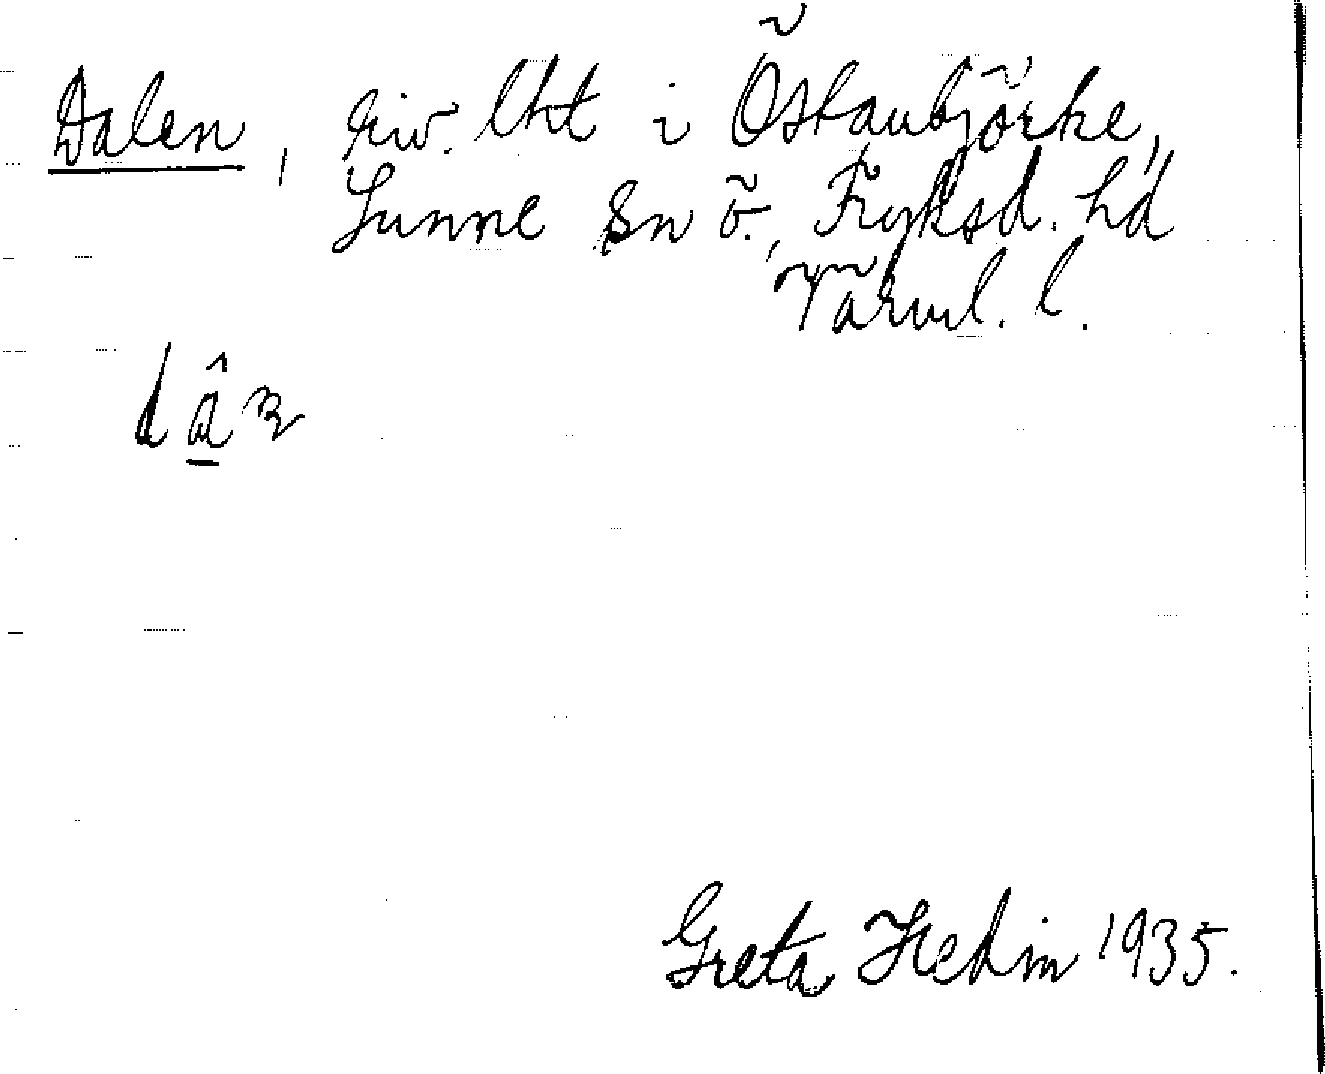 Dalen, riv. lht i Östanbjörke,
Sunne sn ö., Fryksd. hd
Värml. l.
Greta Hedin 1935.